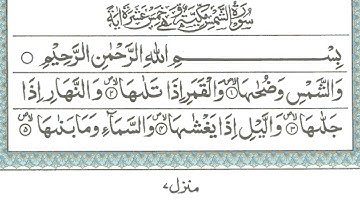 سُوْرَةُ الشَّمْسِ مَكِّيَّةٌ وَّهِيَ خَمْسَ عَشْرَةَ اٰيَةً
بِسْمِ اللهِ الرَّحْمٰنِ الرَّحِيْمِ ○
وَالشَّمْسِ وَضُحٰىهَا ۝۱ وَالْقَمَرِ اِذَا تَلٰىهَا ۝۲ وَالنَّهَارِ اِذَا
جَلّٰىهَا ۝۳ وَالَّيْلِ اِذَا يَغْشٰىهَا ۝۴ وَالسَّمَآءِ وَمَا بَنٰىهَا ۝۵
منزل ۷